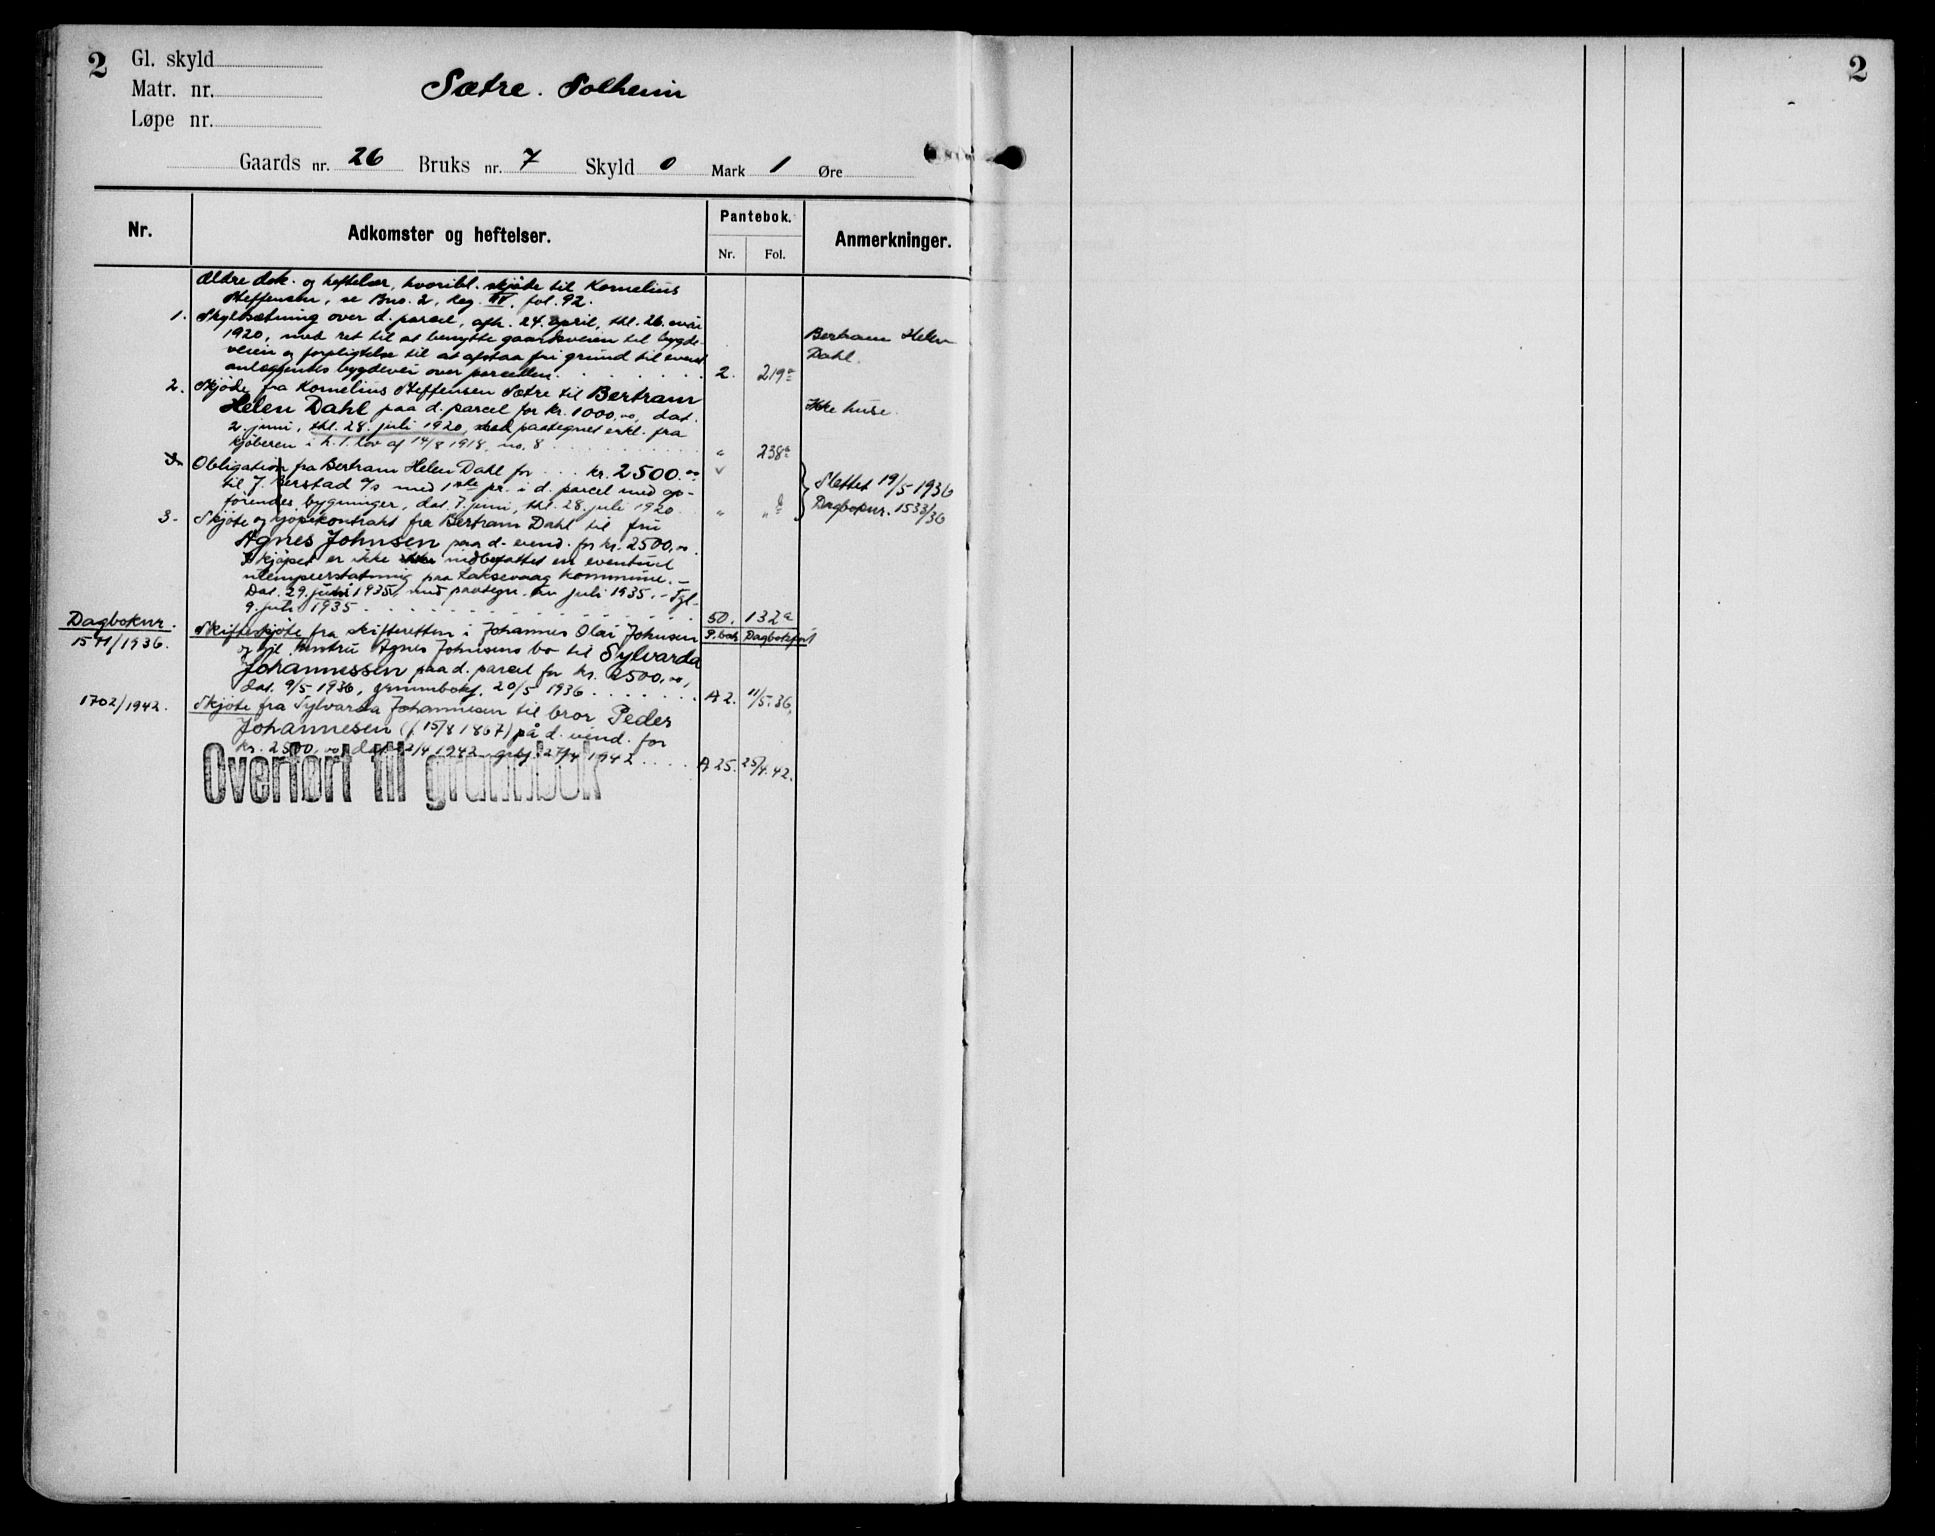 2
Gl. skyld
Matr. nr.
Løpe nr.
Sætre. Solheim
Gaards nr. 26 Bruks nr. 7 Skyld 0 Mark 1 Øre
Nr.
Adkomster og heftelser.
Pantebok.
Nr. Fol.
Anmerkninger.
Ældre dok. og heftelser, hvoribl. skjøte til Kornelius
Steffensen, se Bno. 2, Reg. IV, fol. 92.
1. Skyldsætning over d. parcel, afh. 24. april, thl. 26. mai
1920, med ret til at benytte gaardsveien til bygde-
veien og forpligtelse til at afstaa fri grund til event.
anlæggendes bygdevei over parcellen. 2. 219a
Bertram Helen
Dahl.
2. Skjøde fra Kornelius Steffensen Sætre til Bertram
Helen Dahl paa d. parcel for kr. 1000,00, dat.
2. juni, thl. 28. juli 1920, med paategnet erkl. fra
kjøberen i h. t. lov af 14/8 1918, no. 8 " 238a
Ikke huse.
Obligation fra Bertram Helen Dahl for kr. 2500.00
til J. Berstad A/S med 1ste pr. i d. parcel med op-
førendes bygninger, dat. 7. juni, thl. 28. juli 1920. " "
Slettet 19/5-1936
Dagboknr. 1533/36
3. Skjøte og kjøpekontrakt fra Bertram Dahl til fru
Agnes Johnsen paa d. eiend. for kr. 2500,00.
I kjøpet er ikke indbefattet en eventuel
ulempeerstatning paa Laksevaag kommune. -
Dat. 29. juni 1935, med paategn. av juli 1935. - Tgl.
9. juli 1935 50. 132a
Dagboknr.
1571/1936.
P.bok Dagbokført
Skifteskjøte fra skifteretten i Johannes Olai Johnsen
og hustru Agnes Johnsens bo til Sylvarda
Johannessen paa d. parcel for kr. 2500,00,
dat. 9/5 1936, grunnbokf. 20/5 1936 A2. 11/5.36.
1702/1942.
Skjøte fra Sylvarda Johannesen til bror Peder
Johannesen (f. 15/8 1867) på d. eiend. for
kr. 2500,00, dat. 2/4 1942, grbf. 27/4 1942 A25. 25/4.42.
Overført til grunnbok
2